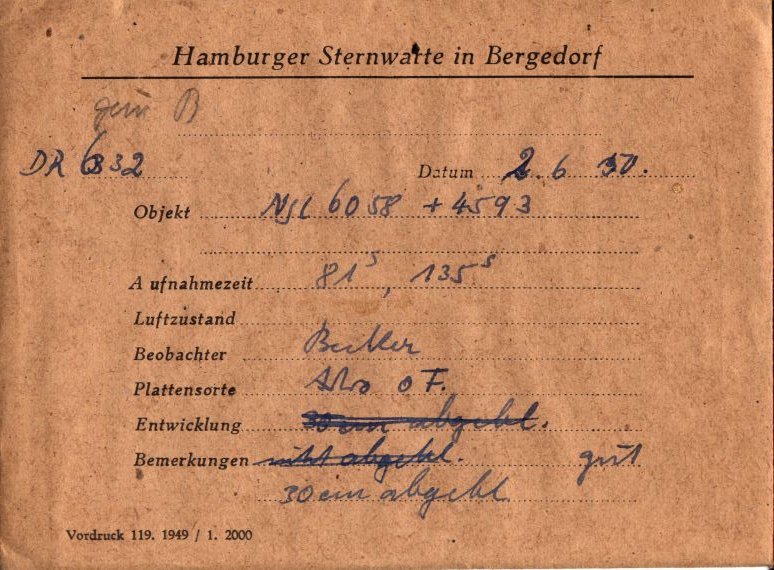 Hamburger Sternwarte in Bergedorf
B
DR 6332 Datum 2. 6 50.
Objekt NGC 6058 + 4593
Aufnahmezeit 81s, 135s
Luftzustand
Beobachter
Plattensorte Astro F.
Entwicklung 30 cm abgebl.
Bemerkungen nicht abgebl. gut
30 cm abgebl.
Vordruck 119. 1949 / 1. 2000